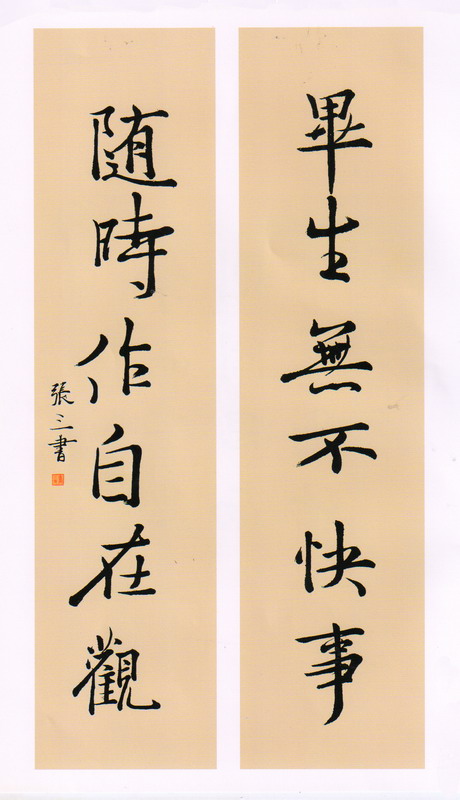 畢生無不快事
随時作自在觀
張三書